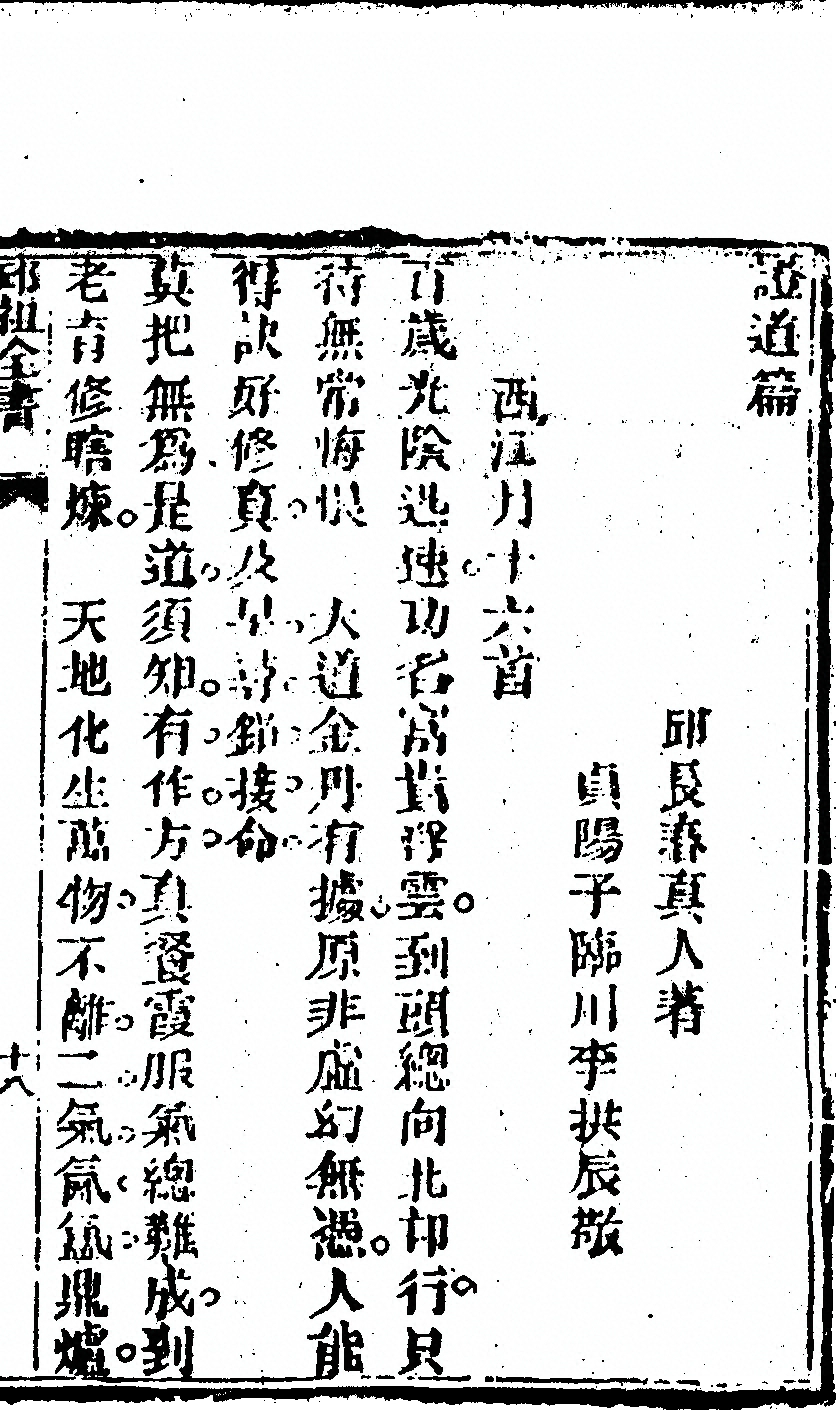 證道篇
邱長春真人著
貞陽子臨川李拱辰敬
西江月十六首
百歲光陰迅速功名富貴浮雲到頭總向北邙行只
待無常悔恨 大道金丹有據原非虛幻無憑人能
得訣好修真及早尋鉛接命
莫把無為是道須知有作方真餐霞服氣總難成到
老盲修瞎煉 天地化生萬物不離二氣氤氳鼎爐
邱祖全書
十八